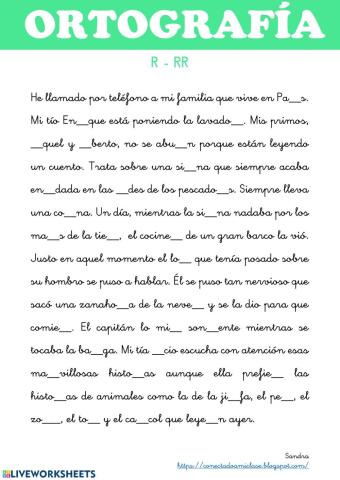 ORTOGRAFÍA
R - RR
He llamado por teléfono a mi familia que vive en Pa__s.
Mi tío En__que está poniendo la lavado__. Mis primos,
__quel y __berto, no se abu__n porque están leyendo
un cuento. Trata sobre una si__na que siempre acaba
en__dada en las __des de los pescado__s. Siempre lleva
una co__na. Un día, mientras la si__na nadaba por los
ma__s de la tie__, el cocine__ de un gran barco la vió.
Justo en aquel momento el lo__ que tenía posado sobre
su hombro se puso a hablar. Él se puso tan nervioso que
sacó una zanaho__a de la neve__ y se la dio para que
comie__. El capitán lo mi__ son__ente mientras se
tocaba la ba__ga. Mi tía __cio escucha con atención esas
ma__villosas histo__as aunque ella prefie__ las
histo__as de animales como la de la ji__fa, el pe__, el
zo__, el to__ y el ca__col que leye__n ayer.
Sandra
https://conectadoamiclase.blogspot.com/
LIVEWORKSHEETS